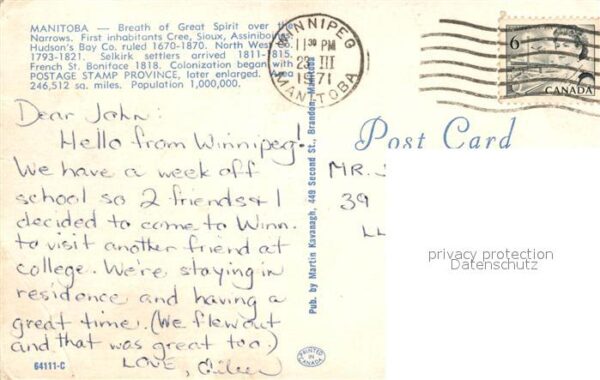 MANITOBA — Breath of Great Spirit over the
Narrows. First inhabitants Cree, Sioux, Assiniboine.
Hudson's Bay Co. ruled 1670-1870. North West Co.
1793-1821. Selkirk settlers arrived 1811-1815.
French St. Boniface 1818. Colonization began with
POSTAGE STAMP PROVINCE, later enlarged. Area
246,512 sq. miles. Population 1,000,000.
WINNIPEG
11 30 PM
23 III
1971
MANITOBA
6
CANADA
Dear John:
Hello from Winnipeg!
We have a week off
school so 2 friends & I
decided to come to Winn.
to visit another friend at
college. We're staying in
residence and having a
great time. (We flew out
and that was great too.)
LOVE, Eileen
64111-C
Pub. by Martin Kavanagh, 449 Second St., Brandon, Manitoba
PRINTED IN CANADA
Post Card
MR. J
39
LL
privacy protection
Datenschutz